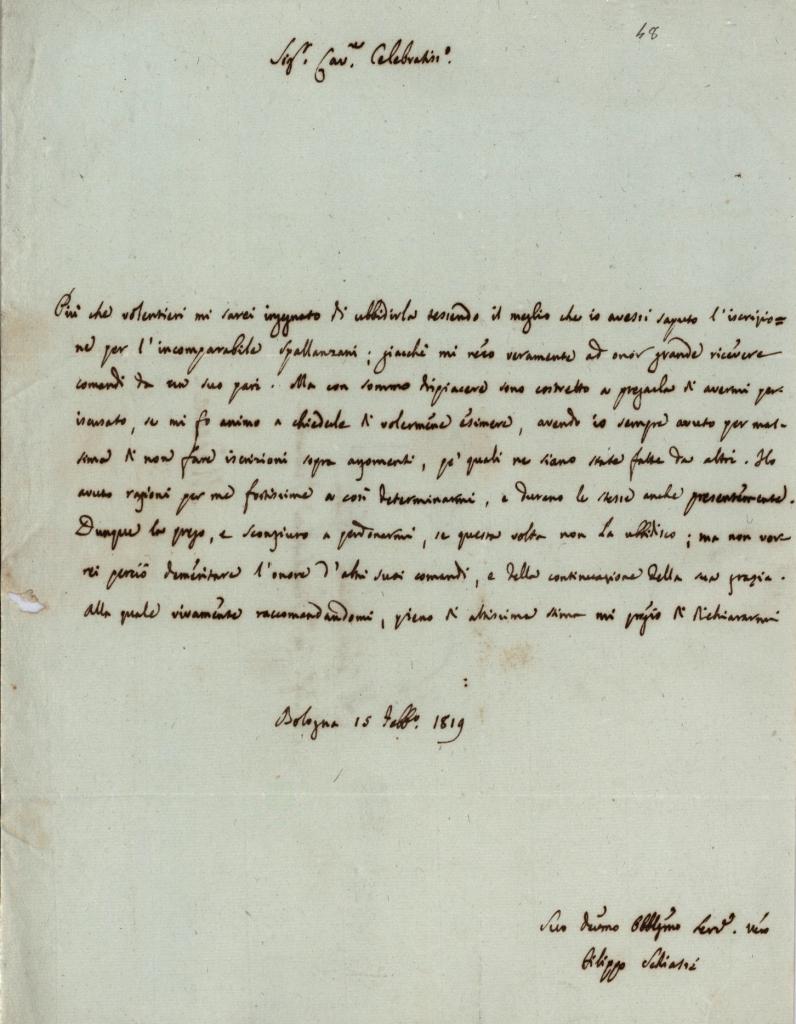 48
Sig.r Cav.re Celebratiss.o
Più che volentieri mi sarei ingegnato di ubbidirla tessendo il meglio che io avessi saputo l'iscrizio=
ne per l'incomparabile Spallanzani; giacchè mi reco veramente ad onor grande ricevere
comandi da un suo pari. Ma con sommo dispiacere sono costretto a pregarla di avermi per
iscusato, se mi fo animo a chiederle di volermene esimere, avendo io sempre avuto per mas-
sima di non fare iscrizioni sopra argomenti, pe' quali ne siano state fatte da altri. Ho
avuto ragioni per me fortissime a così determinarmi, e durano le stesse anche presentemente.
Dunque la prego, e scongiuro a perdonarmi, se questa volta non La ubbidisco; ma non vor-
rei perciò demeritare l'onore d'altri suoi comandi, e della continuazione della sua grazia.
Alla quale vivamente raccomandandomi, pieno di altissima stima mi pregio di dichiararmi
:
Bologna 15 Febb.o 1819
Suo Devmo Obblgmo Serv.e vero
Filippo Schiassi